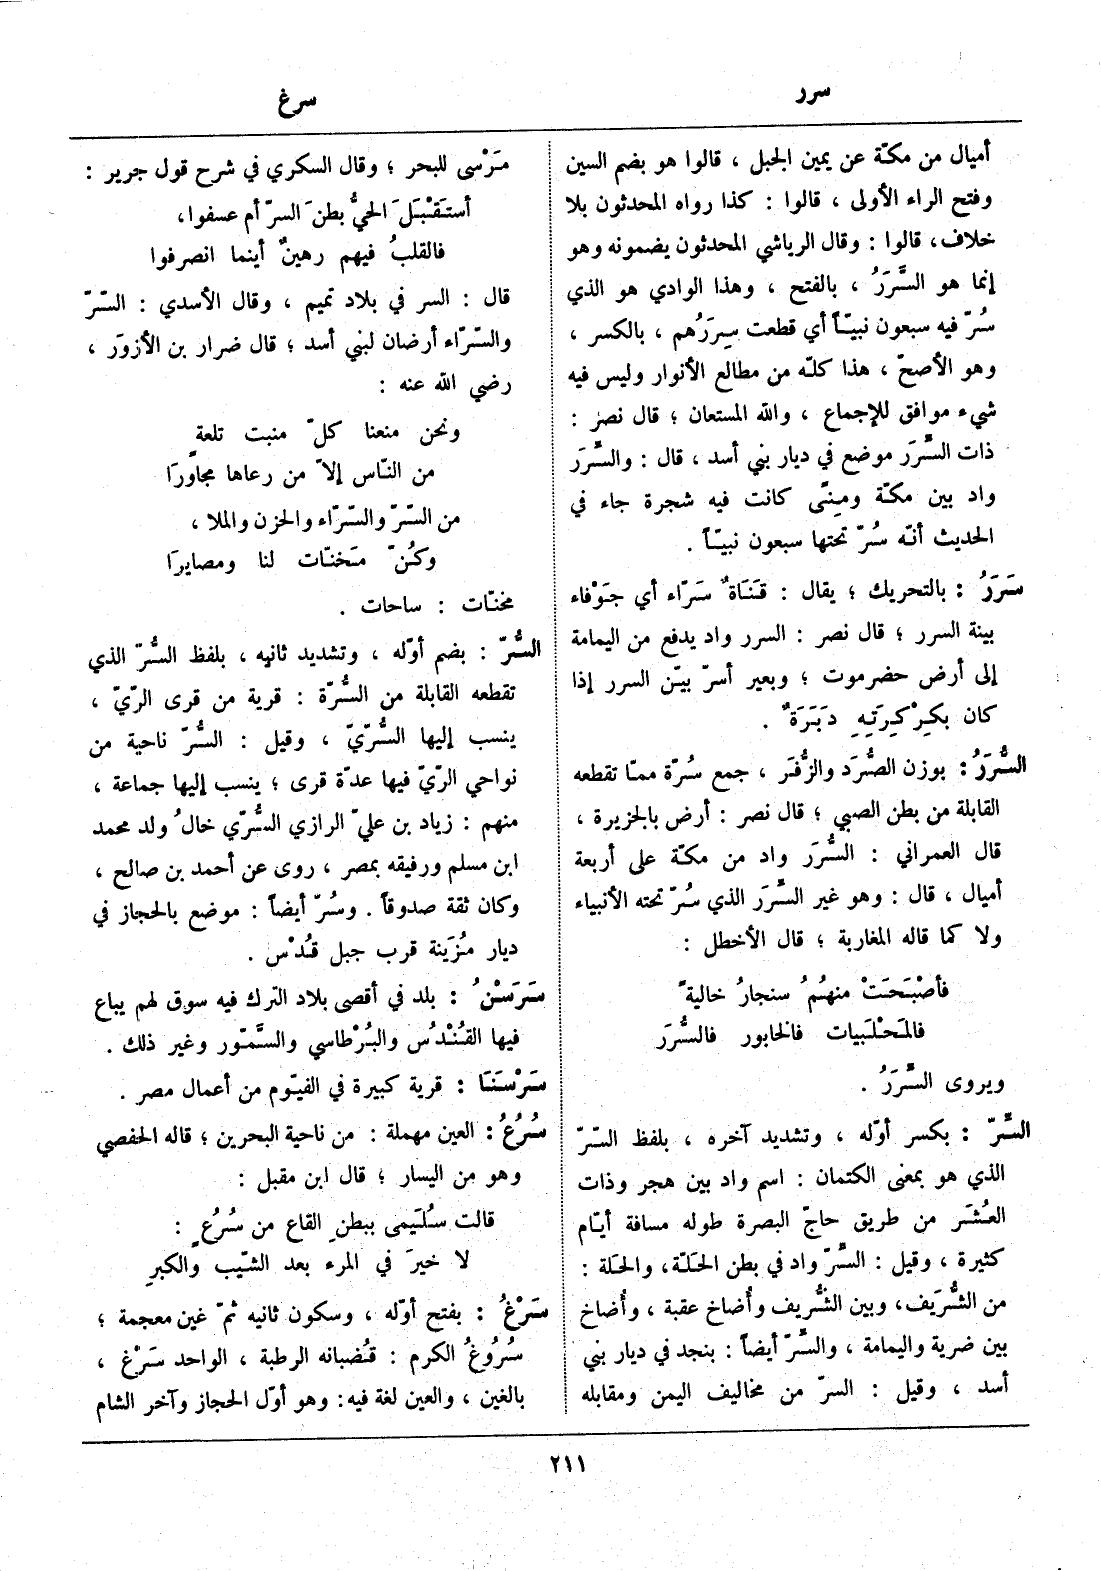 سرر
سرغ
أميال من مكّة عن يمين الجبل ، قالوا هو بضم السين
وفتح الراء الأولى ، قالوا : كذا رواه المحدثون بلا
خلاف، قالوا : وقال الرياشي المحدثون يضمونه وهو
إنما هو السَّرَرُ ، بالفتح ، وهذا الوادي هو الذي
سُرّ فيه سبعون نبيّاً أي قطعت سِرَرُهم ، بالكسر ،
وهو الأصحّ ، هذا كلّه من مطالع الأنوار وليس فيه
شيء موافق للإجماع ، والله المستعان ؛ قال نصر :
ذات السَّرَر موضع في ديار بني أسد ، قال : والسَّرَر
واد بين مكّة ومِنّى كانت فيه شجرة جاء في
الحديث أنّه سُرّ تحتها سبعون نبيّاً .
سَرَرُ : بالتحريك ؛ يقال : قَنَاةٌ سَرّاء أي جَوْفاء
بينة السرر ؛ قال نصر : السرر واد يدفع من اليمامة
إلى أرض حضرموت ؛ وبعير أسرّ بيّن السرر إذا
كان بكِرْكِرَتِهِ دَبَرَةٌ .
السُّرَرُ : بوزن الصُّرَد والزُّفَر ، جمع سُرّة ممّا تقطعه
القابلة من بطن الصبي ؛ قال نصر : أرض بالجزيرة ،
قال العمراني : السُّرَر واد من مكّة على أربعة
أميال ، قال : وهو غير السَّرَر الذي سُرّ تحته الأنبياء
ولا كما قاله المغاربة ؛ قال الأخطل :
فأصْبَحَتْ منهُمُ سنجارُ خاليةً
فالمَحْلَبيات فالخابور فالسُّرَر
ويروى السَّرَرُ .
السِّرّ : بكسر أوّله ، وتشديد آخره ، بلفظ السّرّ
الذي هو بمعنى الكتمان : اسم واد بين هجر وذات
العُشَر من طريق حاجّ البصرة طوله مسافة أيّام
كثيرة ، وقيل : السِّرّ واد في بطن الحَلّة، والحَلة :
من الشُّرَيف، وبين الشُّريف وأُضاخ عقبة ، وأُضاخ
بين ضرية واليمامة ، والسِّرّ أيضاً : بنجد في ديار بني
أسد ، وقيل : السرّ من مخاليف اليمن ومقابله
مَرْسى للبحر ؛ وقال السكري في شرح قول جرير :
أستَقْبَلَ الحيُّ بطنَ السرّ أم عسفوا،
فالقلبُ فيهم رهينٌ أينما انصرفوا
قال : السر في بلاد تميم ، وقال الأسدي : السّرّ
والسّرّاء أرضان لبني أسد ؛ قال ضرار بن الأزوَر ،
رضي الله عنه :
ونحن منعنا كلّ منبت تلعةٍ
من النّاس إلاّ من رعاها مجاورَا
من السّرّ والسّرّاء والحزن والملا ،
وكُنّ مَخنّات لنا ومصايرَا
مخنّات : ساحات .
السُّرّ : بضم أوّله ، وتشديد ثانيه ، بلفظ السُّرّ الذي
تقطعه القابلة من السُّرّة : قرية من قرى الرّيّ ،
ينسب إليها السُّرّيّ ، وقيل : السُّرّ ناحية من
نواحي الرّيّ فيها عدّة قرى ؛ ينسب إليها جماعة ،
منهم : زياد بن عليّ الرازي السُّرّي خالُ ولد محمد
ابن مسلم ورفيقه بمصر ، روى عن أحمد بن صالح ،
وكان ثقة صدوقاً . وسُرّ أيضاً : موضع بالحجاز في
ديار مُزَينة قرب جبل قُدْس .
سَرَسْنُ : بلد في أقصى بلاد الترك فيه سوق لهم يباع
فيها القُنْدُس والبُرْطاسي والسَّمّور وغير ذلك .
سَرْسَنَا : قرية كبيرة في الفيّوم من أعمال مصر .
سُرُعُ : العين مهملة : من ناحية البحرين ؛ قاله الحفصي
وهو من اليسار ؛ قال ابن مقبل :
قالت سُلَيمى ببطنِ القاع من سُرُعٍ :
لا خيرَ في المرء بعد الشّيب والكبرِ
سَرْغُ : بفتح أوّله ، وسكون ثانيه ثمّ غين معجمة ؛
سُرُوغُ الكرم : قُضبانه الرطبة ، الواحد سَرْغ ،
بالغين ، والعين لغة فيه: وهو أوّل الحجاز وآخر الشام
٢١١